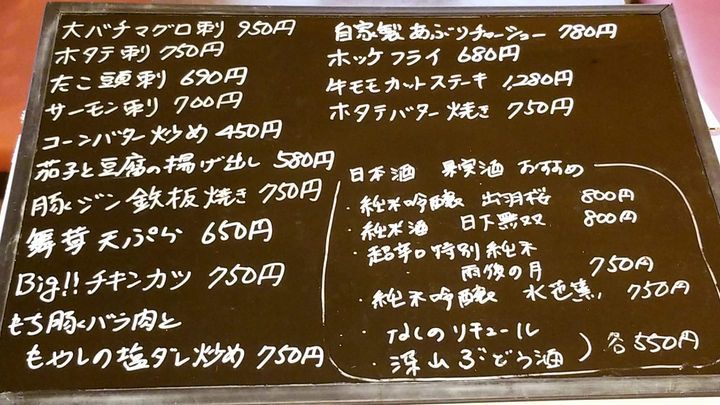 大バチマグロ刺 950円
ホタテ刺 750円
たこ頭刺 690円
サーモン刺 700円
コーンバター炒め 450円
茄子と豆腐の揚げ出し 580円
豚レジン鉄板焼き 750円
舞茸天ぷら 650円
Big!! チキンカツ 750円
もち豚バラ肉と
もやしの塩ダレ炒め 750円
自家製あぶりチャーシュー 780円
ホッケフライ 680円
牛モモカットステーキ 1,280円
ホタテバター焼き 750円
日本酒 果実酒 おすすめ
・純米吟醸 出羽桜 800円
・純米酒 日下無双 800円
・超辛口特別純米
雨後の月 750円
・純米吟醸 水芭蕉 750円
・なしのリキュール
・深山ぶどう酒 ) 各550円